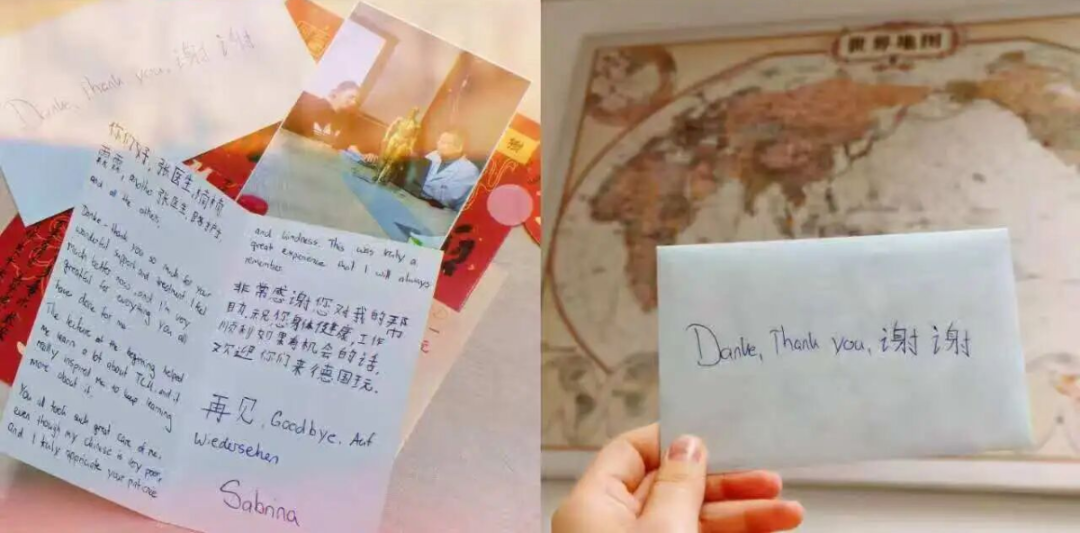 Danke, Thank you, 谢谢
你们好, 张医生, 楠楠
霖霖, another 张医生, 路护士
and all the others,
Danke - thank you so much for your
wonderful support and treatment. I feel
much better now, and I'm very
greatful for everything you all
have done for me.
The lecture at the beginning helped
me learn a lot about TCM, and it
really inspired me to keep learning
more about it.
You all took such great care of me,
even though my Chinese is very poor,
and I truly appriciate your patience
and kindness. This was really a
great experience that I will always
remember.
非常感谢您对我的帮
助, 祝您身体健康, 工作
顺利如果有机会的话,
欢迎你们来德国玩.
再见, Goodbye, Auf
Wiedersehen
Sabrina
世界地图
Danke, Thank you, 谢谢